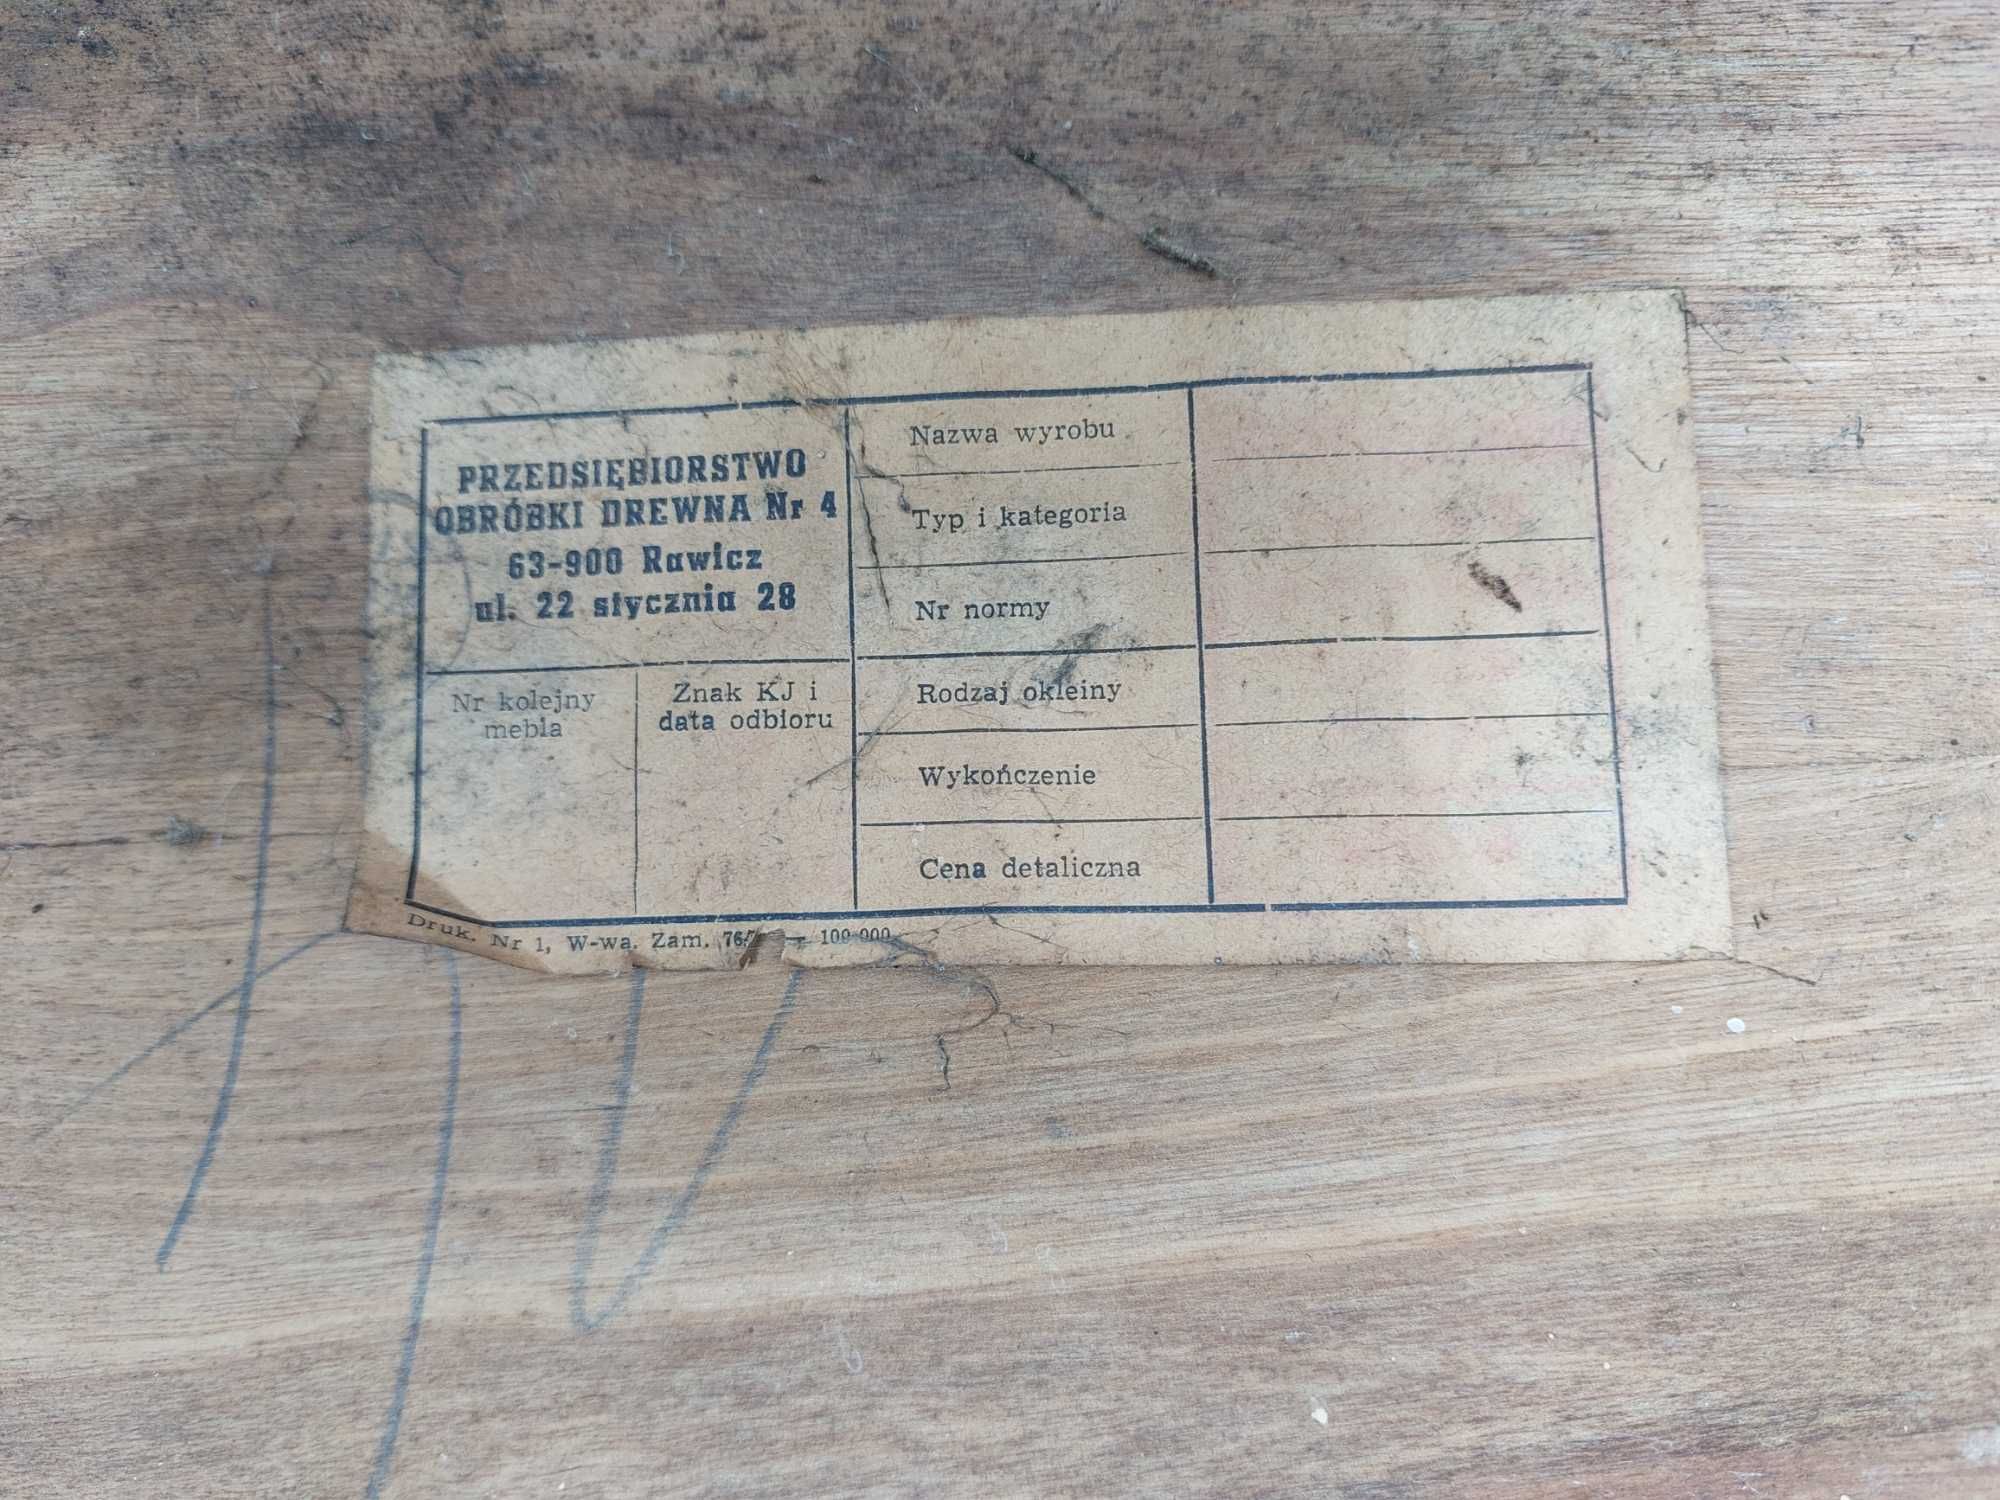 PRZEDSIĘBIORSTWO
OBRÓBKI DREWNA Nr 4
63-900 Rawicz
ul. 22 stycznia 28
Nr kolejny
mebla
Znak KJ i
data odbioru
Nazwa wyrobu
Typ i kategoria
Nr normy
Rodzaj okleiny
Wykończenie
Cena detaliczna
Druk. Nr 1, W-wa. Zam. — 100 000